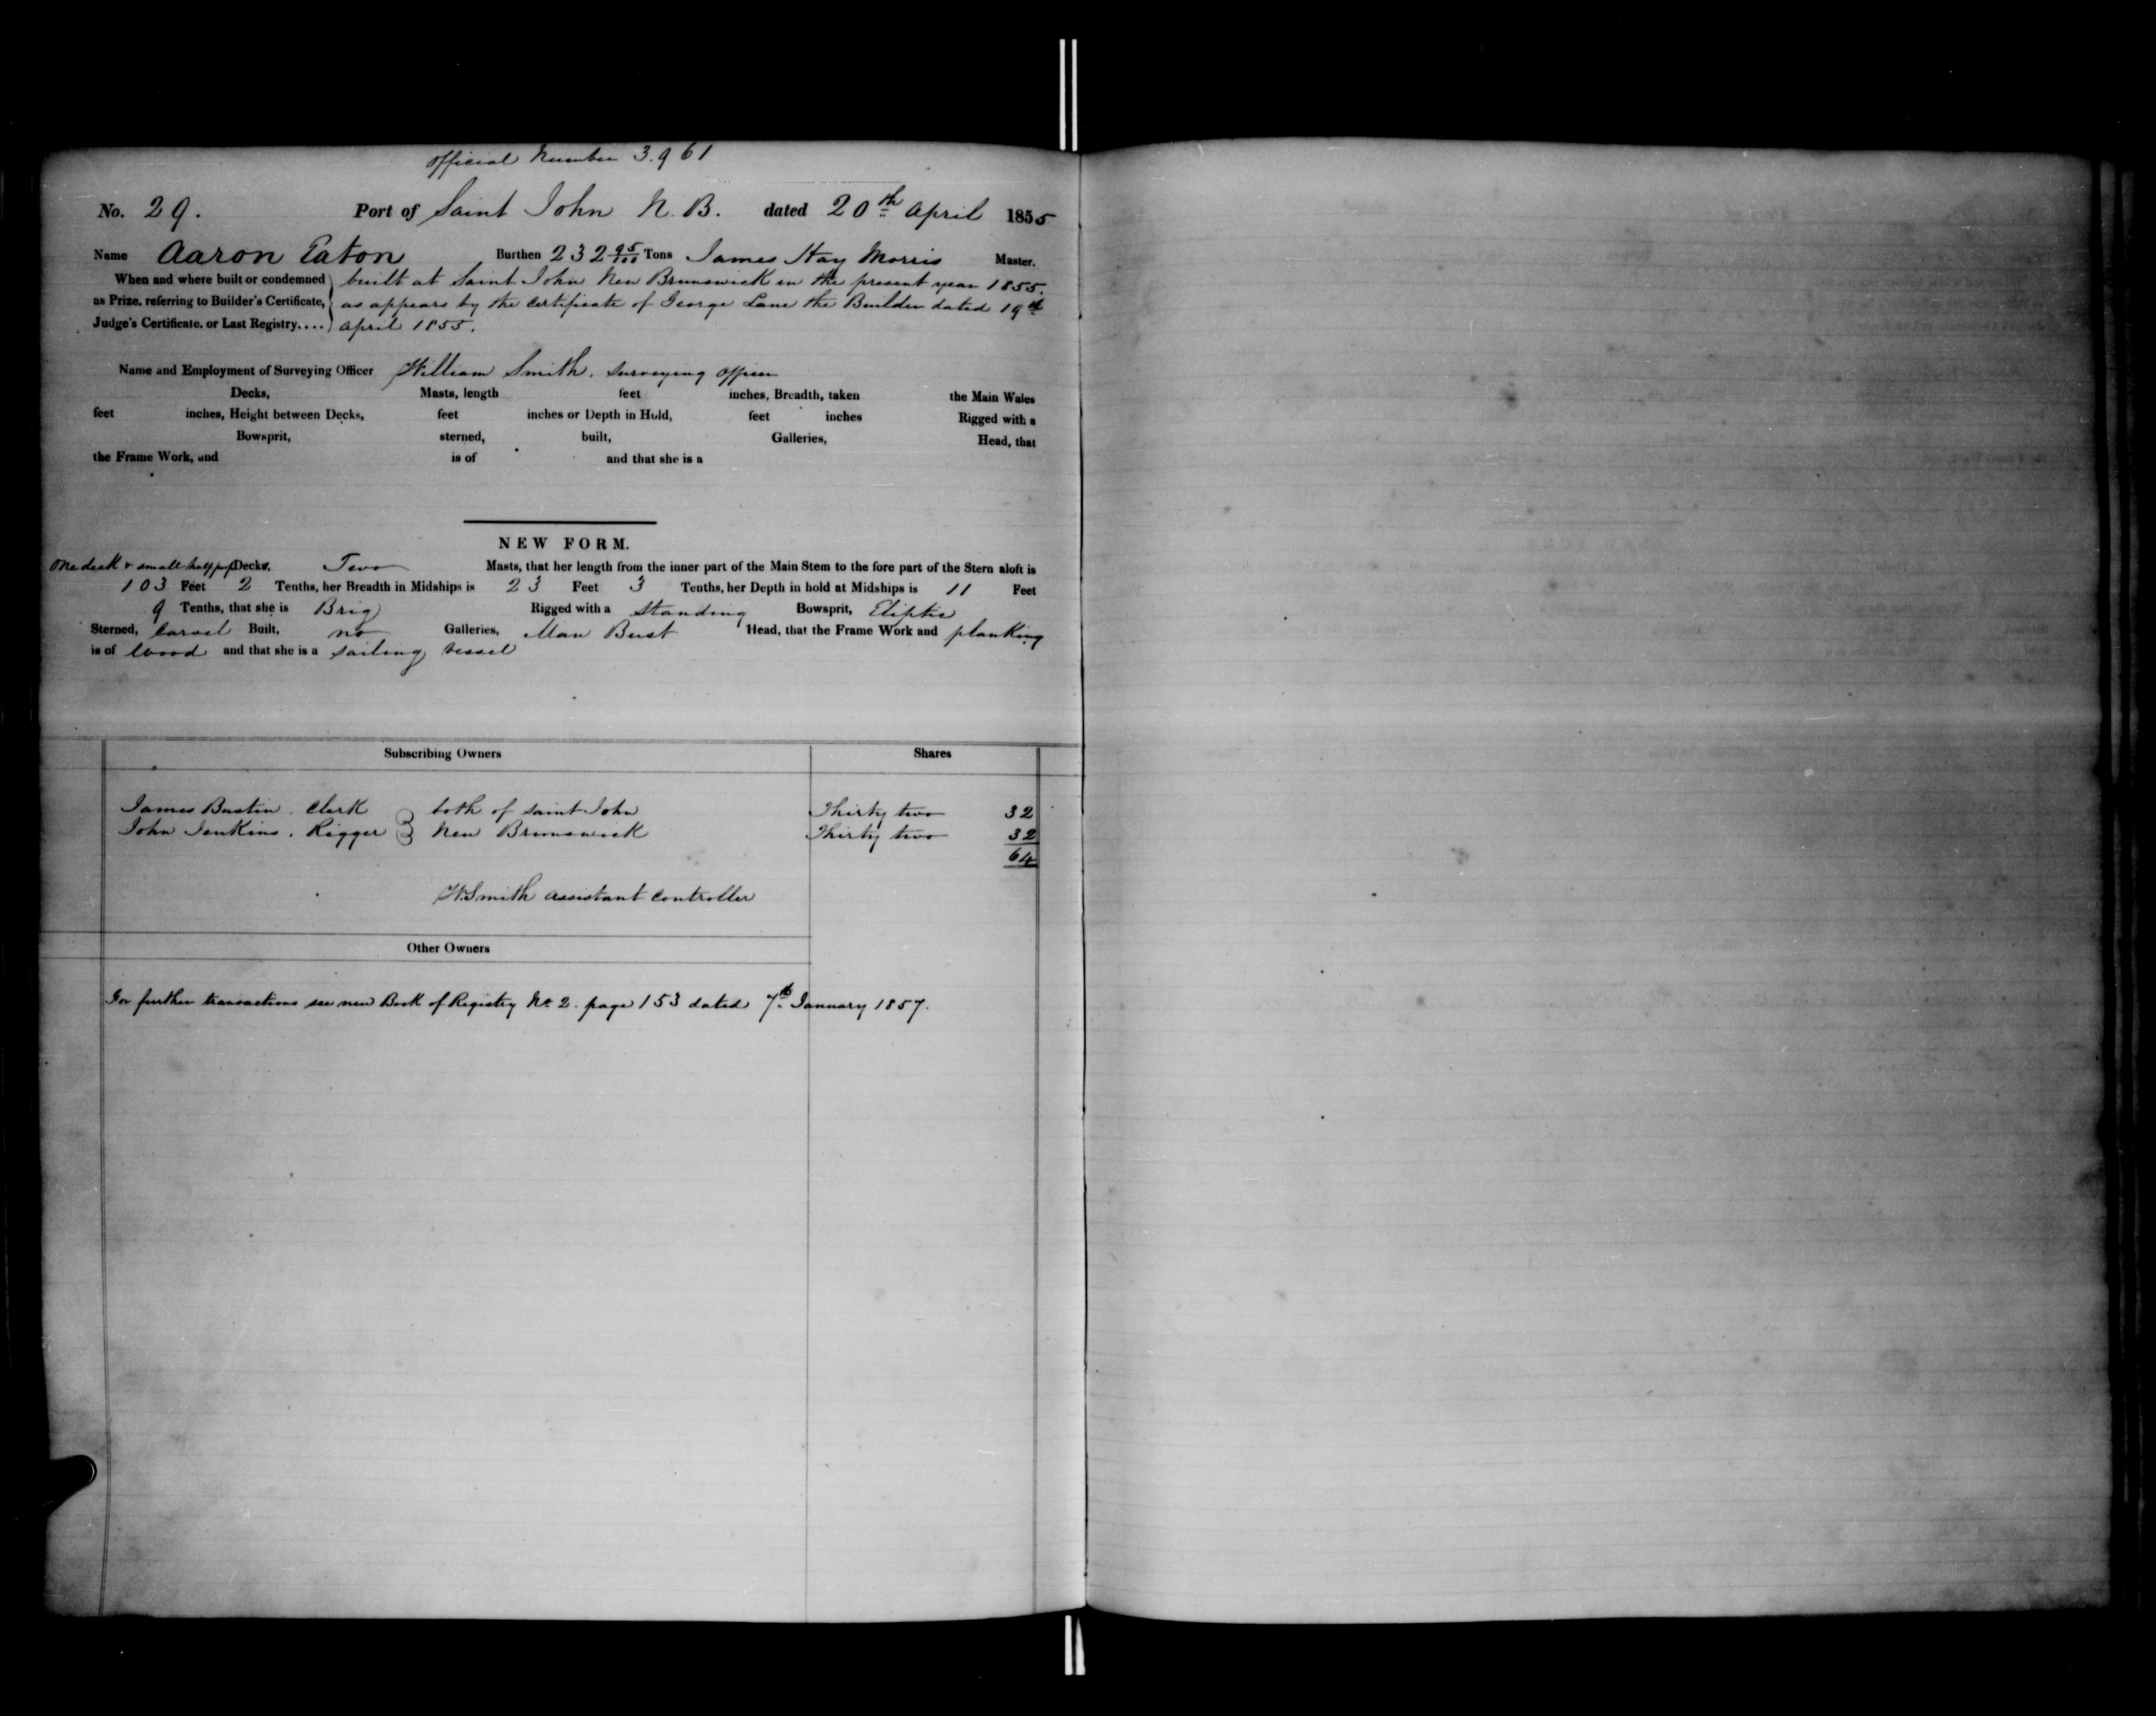 Official Number 3.961
No. 29. Port of Saint John N. B. dated 20th April 1855
Name Aaron Eaton Burthen 232 95/100 Tons James Hay Morris Master.
When and where built or condemned built at Saint John New Brunswick in the present year 1855.
as Prize, referring to Builder's Certificate, as appears by the certificate of George Lane the Builder dated 19th
Judge's Certificate, or Last Registry.... April 1855.
Name and Employment of Surveying Officer William Smith. Surveying Officer
Decks, Masts, length feet inches, Breadth, taken the Main Wales
feet inches, Height between Decks, feet inches or Depth in Hold, feet inches Rigged with a
Bowsprit, sterned, built, Galleries, Head, that
the Frame Work, and is of and that she is a
NEW FORM.
One deck & small half poop Decks. Two Masts, that her length from the inner part of the Main Stem to the fore part of the Stern aloft is
103 Feet 2 Tenths, her Breadth in Midships is 23 Feet 3 Tenths, her Depth in hold at Midships is 11 Feet
9 Tenths, that she is Brig Rigged with a Standing Bowsprit, Eliptic
Sterned, Carvel Built, no Galleries, Man Bust Head, that the Frame Work and planking
is of Wood and that she is a sailing vessel
Subscribing Owners Shares
James Bustin. Clerk both of Saint John Thirty two 32
John Jenkins. Rigger New Brunswick Thirty two 32
64
W. Smith assistant controller
Other Owners
For further transactions see new Book of Registry No 2. page 153 dated 7th January 1857.